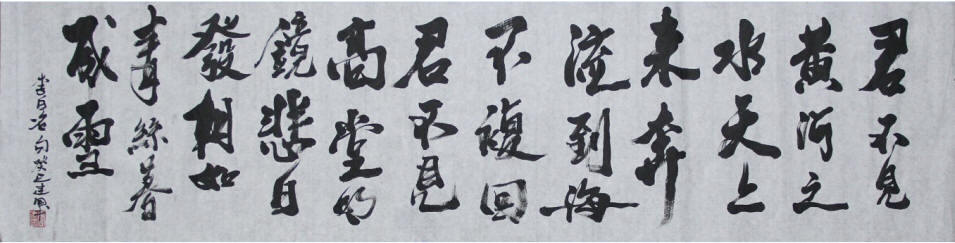 君不見
黄河之
水天上
来奔
流到海
不複回
君不見
高堂明
鏡悲白
發朝如
青絲暮
成雪
李白名句癸巳建